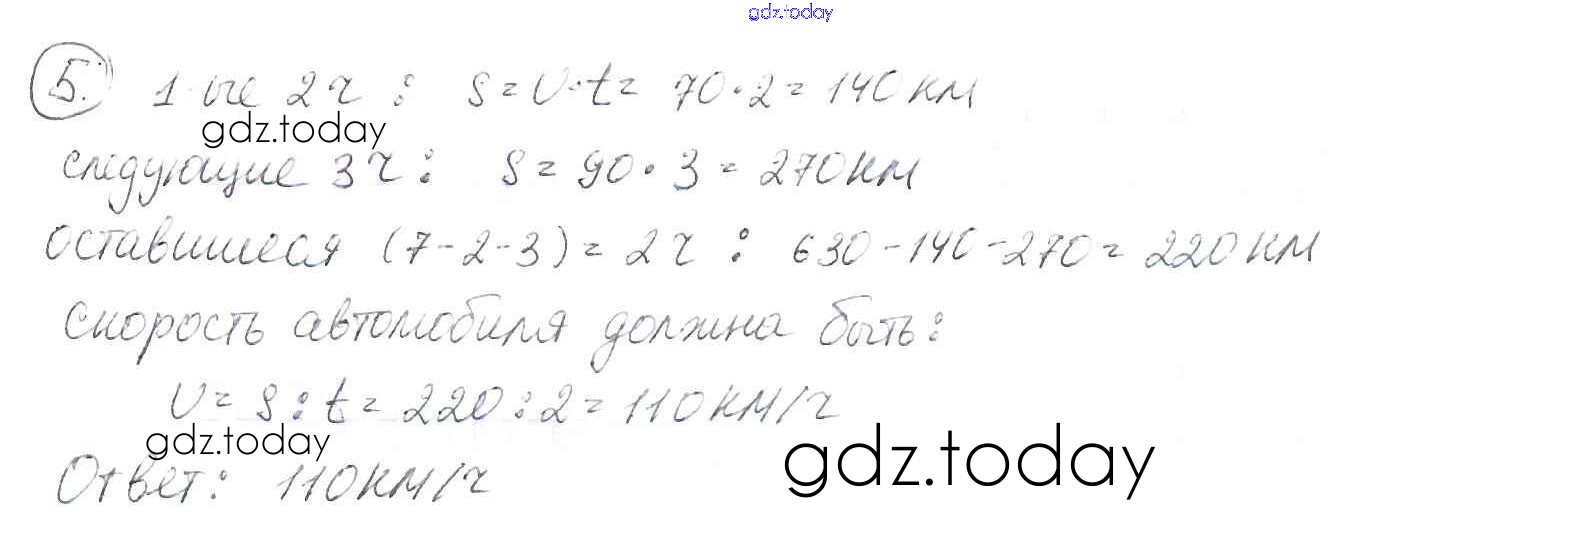 gdz.today
5. 1-ые 2 ч : S = υ·t = 70·2 = 140 км
gdz.today
следующие 3 ч : S = 90·3 = 270 км
оставшиеся (7-2-3) = 2 ч : 630-140-270 = 220 км
скорость автомобиля должна быть:
υ = S : t = 220 : 2 = 110 км/ч
gdz.today
gdz.today
Ответ: 110 км/ч